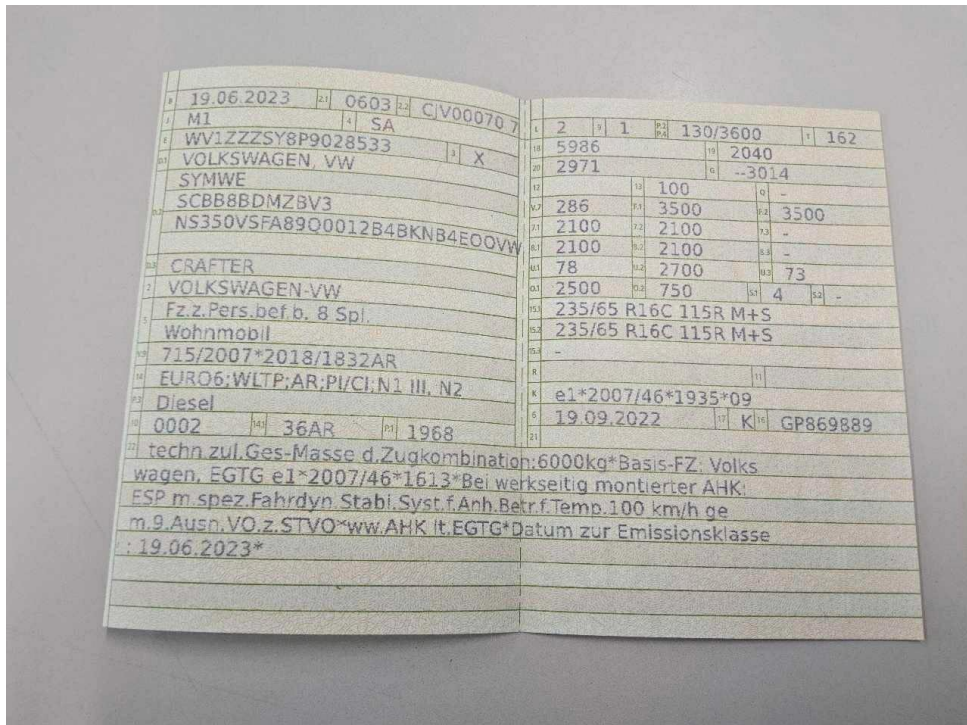 B 19.06.2023 2.1 0603 2.2 CJV00070 7
J M1 4 SA
E WV1ZZZSY8P9028533 3 X
D.1 VOLKSWAGEN, VW
SYMWE
D.2 SCBB8BDMZBV3
NS350VSFA89Q0012B4BKNB4EOOVW
D.3 CRAFTER
2 VOLKSWAGEN-VW
5 Fz.z.Pers.bef.b. 8 Spl.
Wohnmobil
V.9 715/2007*2018/1832AR
14 EURO6;WLTP;AR;PI/CI;N1 III, N2
P.3 Diesel
10 0002 14.1 36AR P.1 1968
L 2 9 1 P.2 P.4 130/3600 T 162
18 5986 19 2040
20 2971 G --3014
12 13 100 Q -
V.7 286 F.1 3500 F.2 3500
7.1 2100 7.2 2100 7.3 -
8.1 2100 8.2 2100 8.3 -
U.1 78 U.2 2700 U.3 73
O.1 2500 O.2 750 S.1 4 S.2 -
15.1 235/65 R16C 115R M+S
15.2 235/65 R16C 115R M+S
15.3 -
R 11
K e1*2007/46*1935*09
6 19.09.2022 17 K 16 GP869889
21
22 techn.zul.Ges-Masse d.Zugkombination:6000kg*Basis-FZ: Volks
wagen, EGTG e1*2007/46*1613*Bei werkseitig montierter AHK:
ESP m.spez.Fahrdyn.Stabi.Syst.f.Anh.Betr.f.Temp.100 km/h ge
m.9.Ausn.VO.z.STVO*ww.AHK lt.EGTG*Datum zur Emissionsklasse
: 19.06.2023*